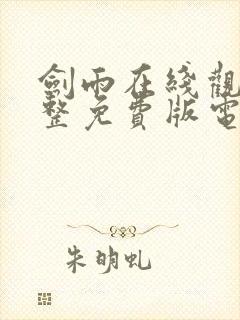 劍雨在綫觀
整免費版電
朱明虬